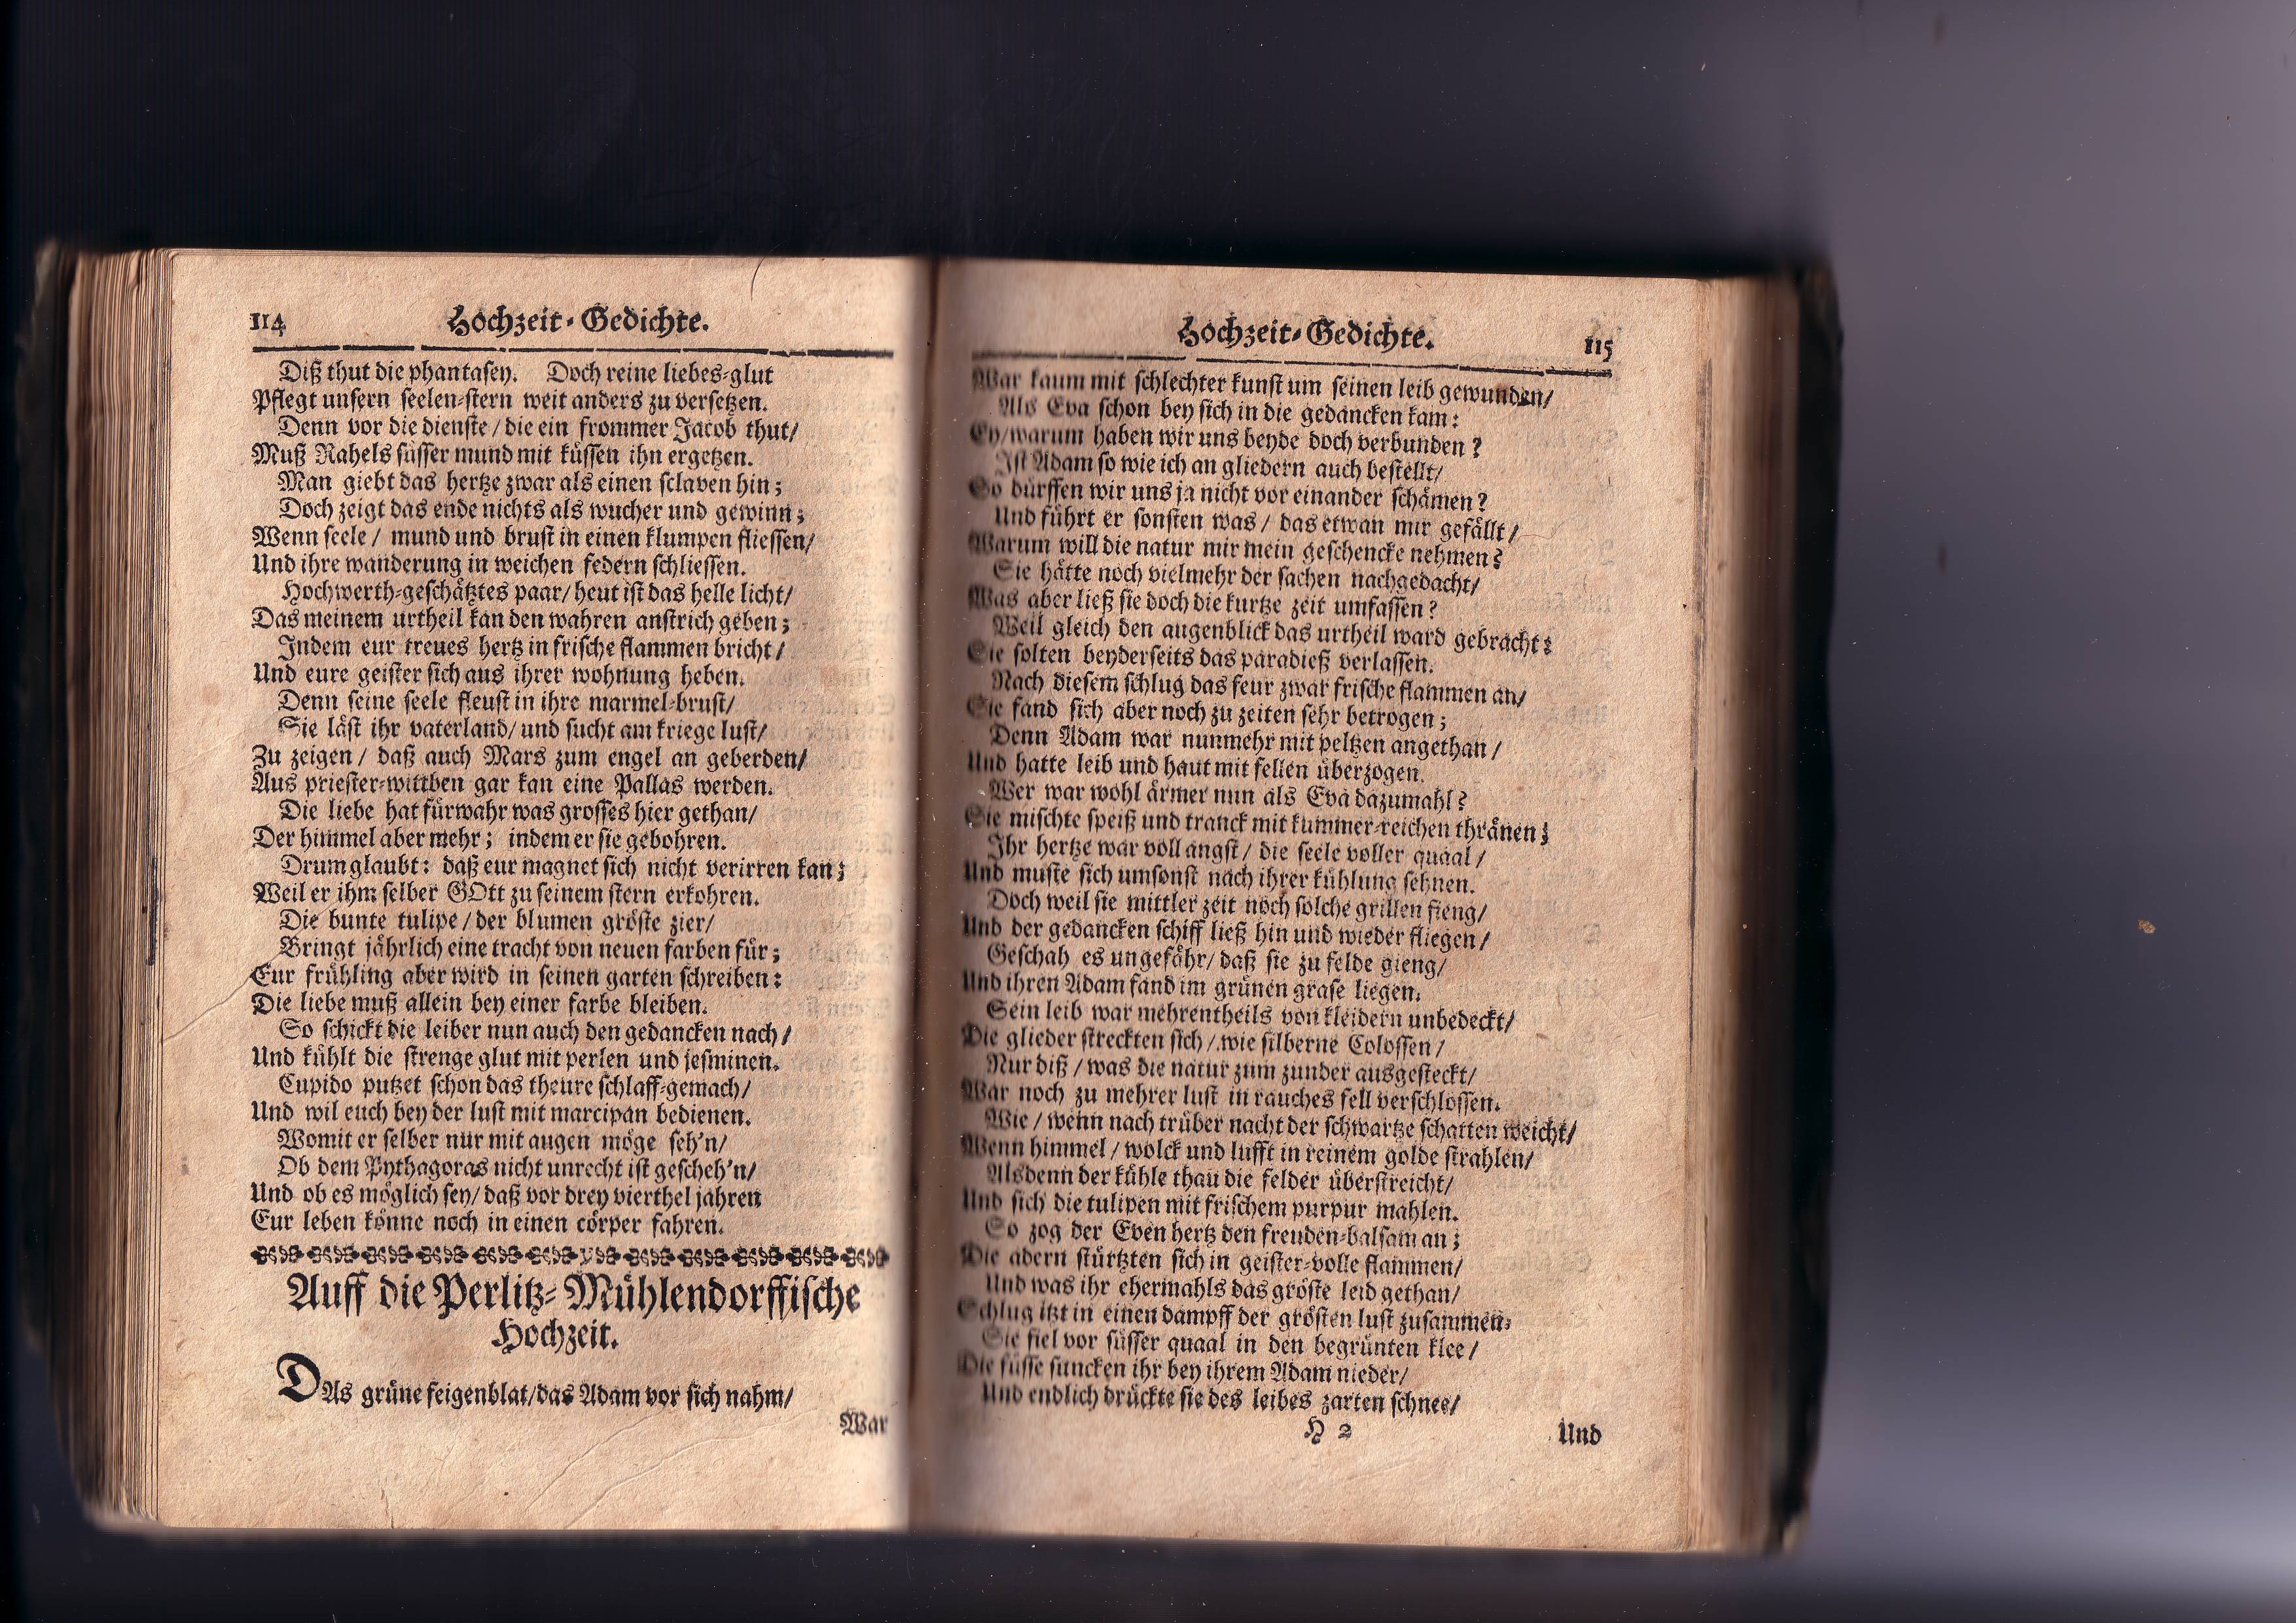 114
Hochzeit-Gedichte.
Diß thut die phantasey. Doch reine liebes-glut
Pflegt unsern seelen-stern weit anders zu versetzen.
Denn vor die dienste / die ein frommer Jacob thut/
Muß Rahels süsser mund mit küssen ihn ergetzen.
Man giebt das hertze zwar als einen sclaven hin;
Doch zeigt das ende nichts als wucher und gewinn;
Wenn seele / mund und brust in einen klumpen fliessen/
Und ihre wanderung in weichen federn schliessen.
Hochwerth-geschätztes paar/ heut ist das helle licht/
Das meinem urtheil kan den wahren anstrich geben;
Indem eur treues hertz in frische flammen bricht/
Und eure geister sich aus ihrer wohnung heben.
Denn seine seele fleust in ihre marmel-brust/
Sie läst ihr vaterland/ und sucht am kriege lust/
Zu zeigen / daß auch Mars zum engel an geberden/
Aus priester-wittben gar kan eine Pallas werden.
Die liebe hat fürwahr was grosses hier gethan/
Der himmel aber mehr; indem er sie gebohren.
Drum glaubt: daß eur magnet sich nicht verirren kan;
Weil er ihm selber GOtt zu seinem stern erkohren.
Die bunte tulipe / der blumen gröste zier/
Bringt jährlich eine tracht von neuen farben für;
Eur frühling aber wird in seinen garten schreiben:
Die liebe muß allein bey einer farbe bleiben.
So schickt die leiber nun auch den gedancken nach/
Und kühlt die strenge glut mit perlen und jesminen.
Cupido putzet schon das theure schlaff-gemach/
Und wil euch bey der lust mit marcipan bedienen.
Womit er selber nur mit augen möge seh'n/
Ob dem Pythagoras nicht unrecht ist gescheh'n/
Und ob es möglich sey/ daß vor drey vierthel jahren
Eur leben könne noch in einen cörper fahren.
Auff die Perlitz-Mühlendorffische
Hochzeit.
DAs grüne feigenblat/das Adam vor sich nahm/
War
Hochzeit-Gedichte.
115
War kaum mit schlechter kunst um seinen leib gewunden/
Als Eva schon bey sich in die gedancken kam:
Ey/warum haben wir uns beyde doch verbunden?
Ist Adam so wie ich an gliedern auch bestellt/
So dürffen wir uns ja nicht vor einander schämen?
Und führt er sonsten was / das etwan mir gefällt/
Warum will die natur mir mein geschencke nehmen?
Sie hätte noch vielmehr der sachen nachgedacht/
Was aber ließ sie doch die kurtze zeit umfassen?
Weil gleich den augenblick das urtheil ward gebracht:
Sie solten beyderseits das paradieß verlassen.
Nach diesem schlug das feur zwar frische flammen an/
Sie fand sich aber noch zu zeiten sehr betrogen;
Denn Adam war nunmehr mit peltzen angethan/
Und hatte leib und haut mit fellen überzogen.
Wer war wohl ärmer nun als Eva dazumahl?
Sie mischte speiß und tranck mit kummer-reichen thränen;
Ihr hertze war voll angst/ die seele voller quaal/
Und muste sich umsonst nach ihrer kühlung sehnen.
Doch weil sie mittler zeit noch solche grillen fieng/
Und der gedancken schiff ließ hin und wieder fliegen/
Geschah es ungefähr/ daß sie zu felde gieng/
Und ihren Adam fand im grünen grase liegen.
Sein leib war mehrentheils von kleidern unbedeckt/
Die glieder streckten sich / wie silberne Colossen/
Nur diß / was die natur zum zunder ausgesteckt/
War noch zu mehrer lust in rauches fell verschlossen.
Wie / wenn nach trüber nacht der schwartze schatten weicht/
Wenn himmel / wolck und lufft in reinem golde strahlen/
Alsdenn der kühle thau die felder überstreicht/
Und sich die tulipen mit frischem purpur mahlen.
So zog der Even hertz den freuden-balsam an;
Die adern stürtzten sich in geister-volle flammen/
Und was ihr ehermahls das gröste leid gethan/
Schlug itzt in einen dampff der grösten lust zusammen.
Sie fiel vor süsser quaal in den begrünten klee/
Die füsse suncken ihr bey ihrem Adam nieder/
Und endlich drückte sie des leibes zarten schnee/
H 2
Und